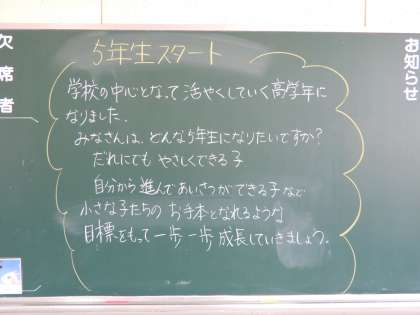 欠席者
お知らせ
5年生スタート
学校の中心となって活やくしていく高学年に
なりました.
みなさんは、どんな5年生になりたいですか?
だれにでも やさしくできる子
自分から進んであいさつができる子など
小さな子たちの お手本となれるような
目標をもって一歩一歩 成長していきましょう。